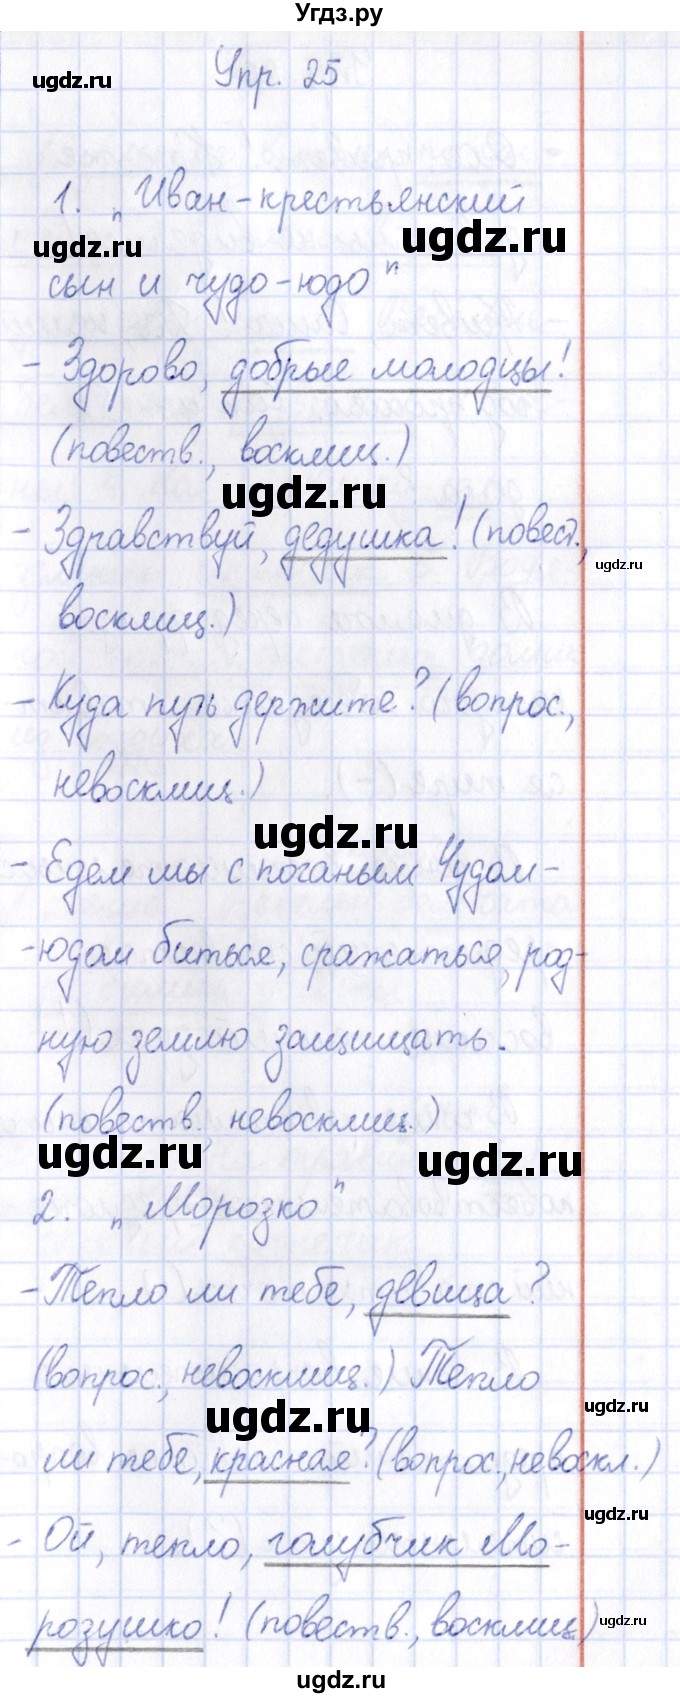 Угдз.ру
ugdz.ru
Упр. 25
1. „Иван-крестьянский
ugdz.ru
ugdz.ru
сын и чудо-юдо"
- Здорово, добрые молодцы!
(повеств., восклиц.)
ugdz.ru
- Здравствуй, дедушка! (повест.,
ugdz.ru
восклиц.)
- Куда путь держите? (вопрос.,
невосклиц.)
ugdz.ru
- Едем мы с поганым Чудом-
-юдом биться, сражаться, род-
ugdz.ru
ную землю защищать.
(повеств., невосклиц.)
ugdz.ru
ugdz.ru
2. „Морозко"
- Тепло ли тебе, девица?
(вопрос., невосклиц.) Тепло
ugdz.ru
ugdz.ru
ли тебе, красная? (вопрос., невоскл.)
ugdz.ru
- Ой, тепло, голубчик Мо-
розушко! (повеств., восклиц.)
ugdz.ru
ugdz.ru